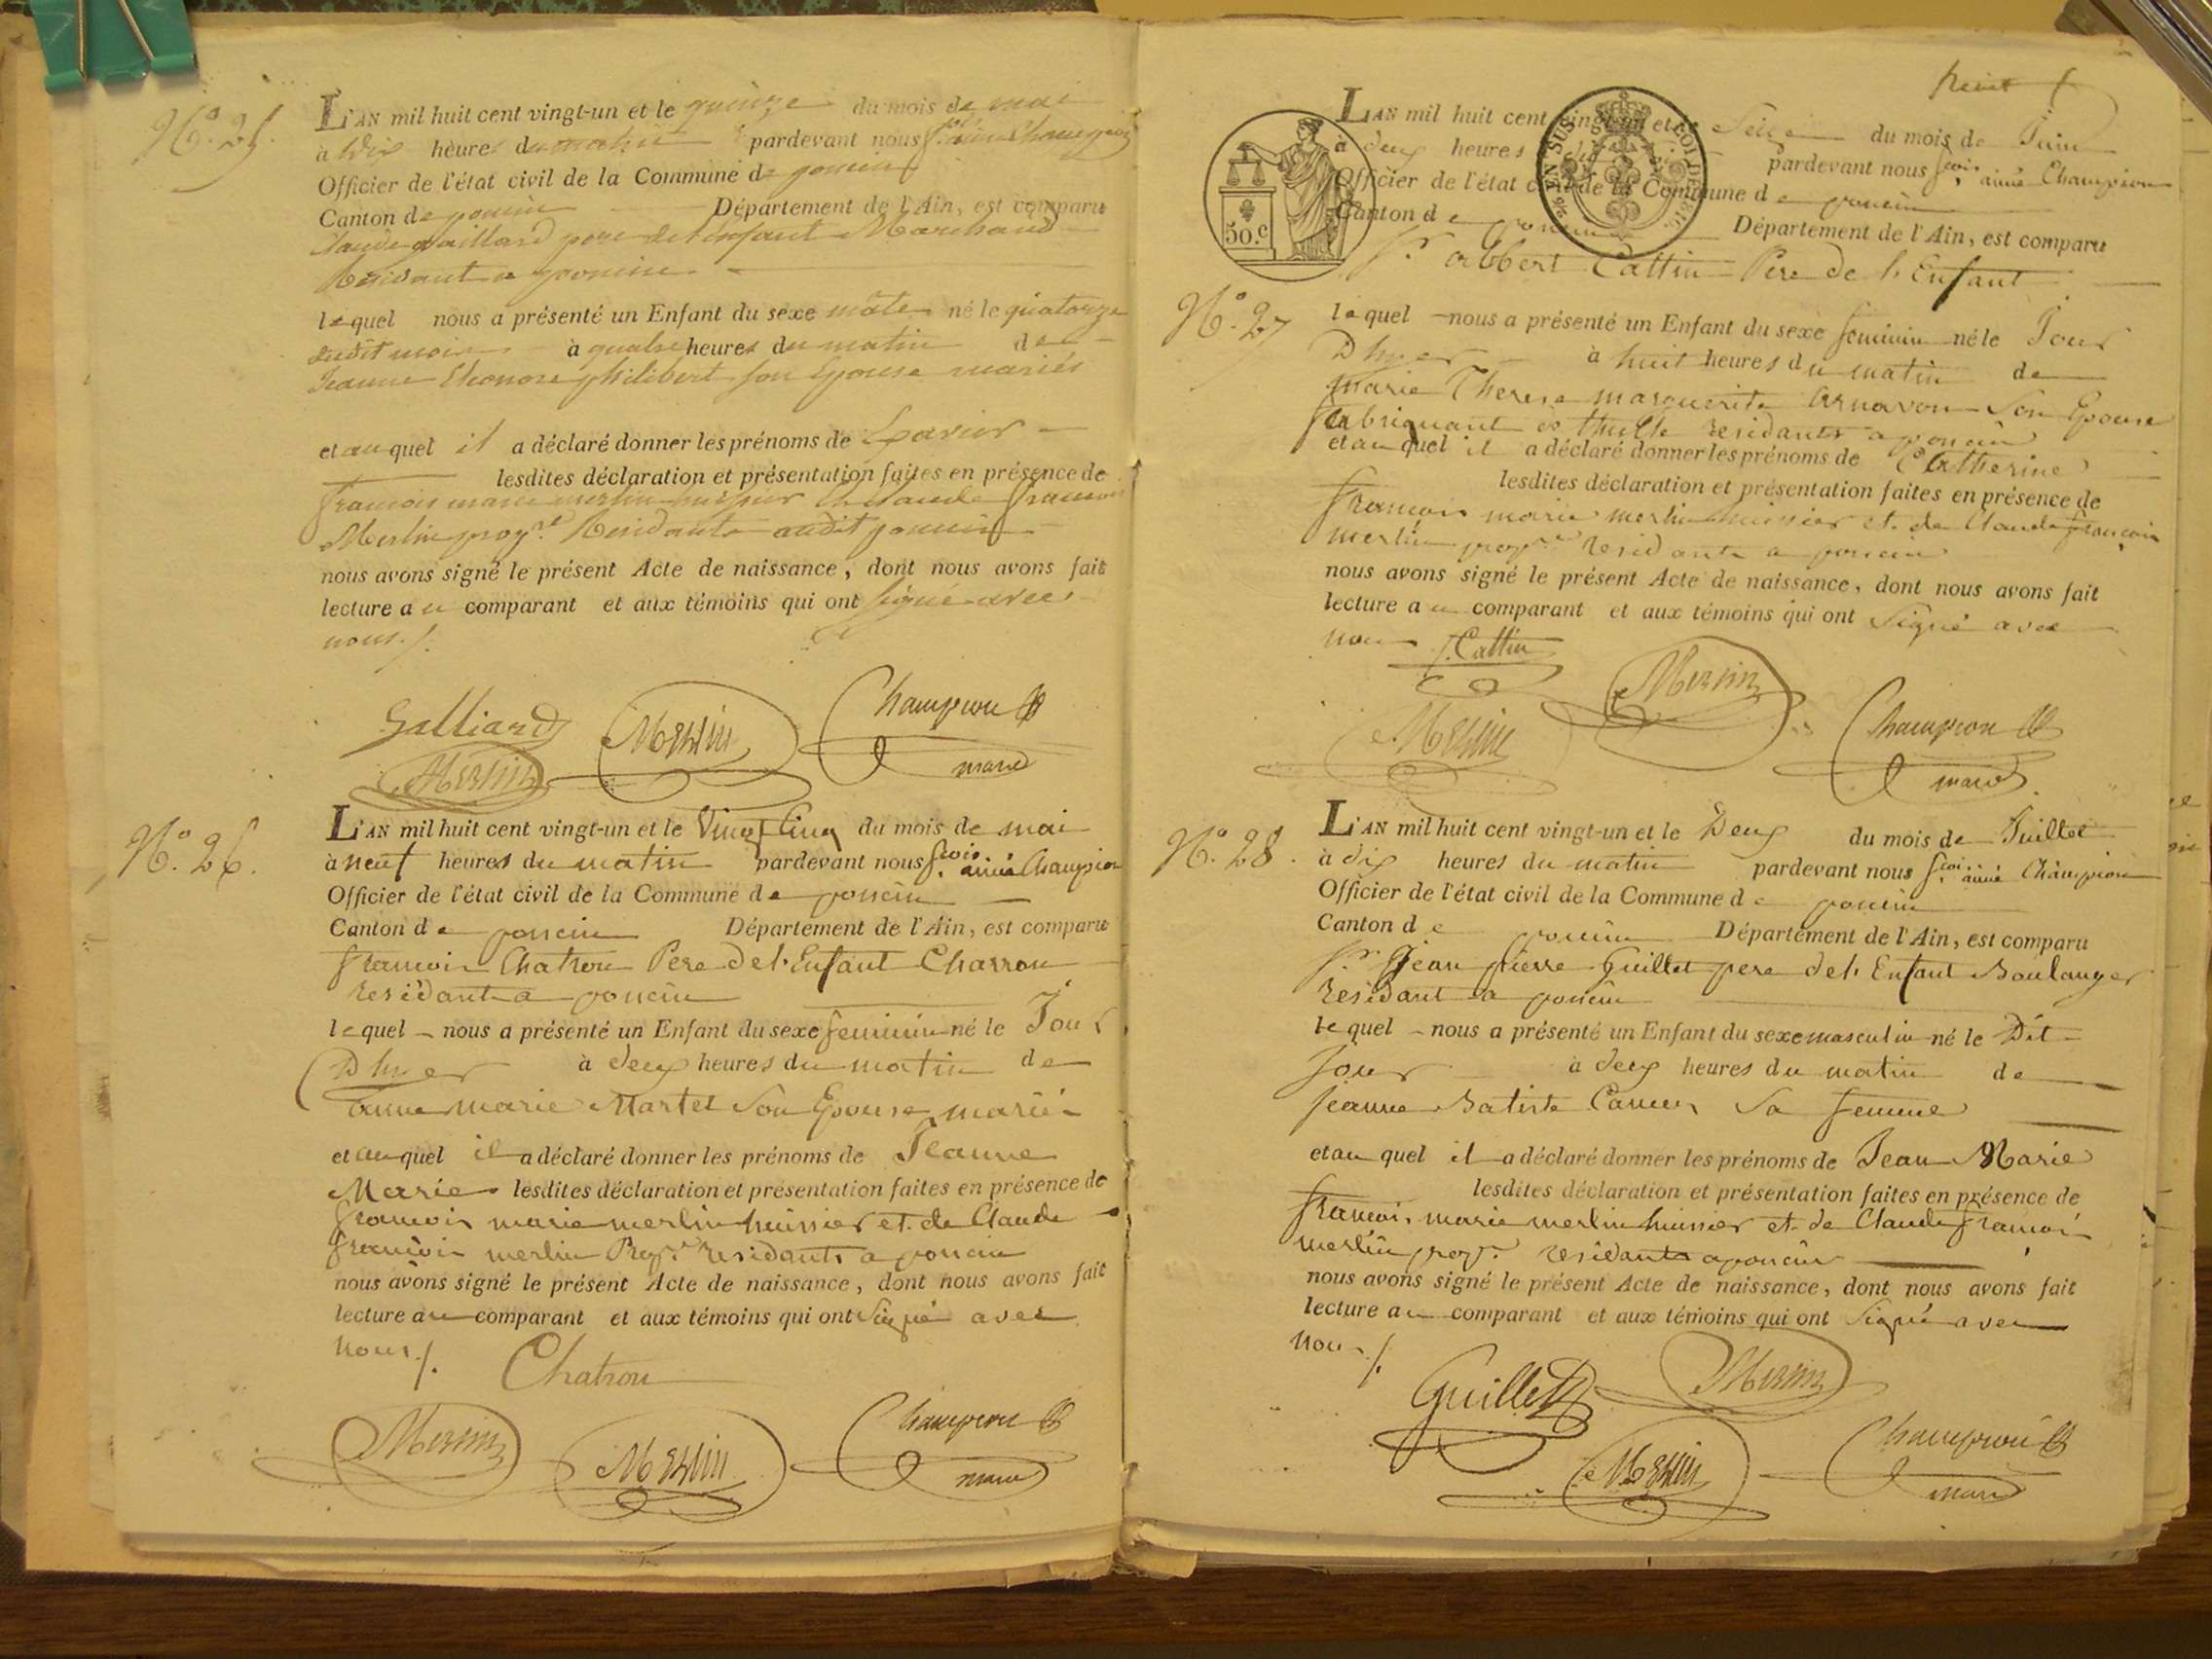 N.º 25.
L'AN mil huit cent vingt-un et le quinze du mois de mai
à dix heures du matin pardevant nous f.cois aimé Champion
Officier de l'état civil de la Commune de poncin
Canton de poncin Département de l'Ain, est comparu
Claude gaillard pere de l'enfant Marchand
Residant a poncin
lequel nous a présenté un Enfant du sexe mâle né le quatorze
dudit mois à quatre heures du matin de
Jeanne Eleonore philibert son Epouse mariés
et au quel il a déclaré donner les prénoms de Xavier
lesdites déclaration et présentation faites en présence de
francois marie merlin huissier et claude francois
Merlin prop.re Residants audit poncin
nous avons signé le présent Acte de naissance, dont nous avons fait
lecture au comparant et aux témoins qui ont signé avec
nous ./.
Galliard Merlin Champion
Merlin maire
N.º 26.
L'AN mil huit cent vingt-un et le Vingt Cinq du mois de mai
à neuf heures du matin pardevant nous f.cois aimé Champion
Officier de l'état civil de la Commune de poncin
Canton de poncin Département de l'Ain, est comparu
francois Chatron Pere de l'Enfant Charron
residant a poncin
lequel nous a présenté un Enfant du sexe feminin né le Jour
D'hyer à deux heures du matin de
anne marie Martel Son Epouse mariés
et au quel il a déclaré donner les prénoms de Jeanne
Marie lesdites déclaration et présentation faites en présence de
francois marie merlin huissier et de Claude
francois merlin Prop.re residants a poncin
nous avons signé le présent Acte de naissance, dont nous avons fait
lecture au comparant et aux témoins qui ont Signé avec
nous ./. Chatron
Merlin Merlin Champion
maire
huit
L'AN mil huit cent vingt-un et le Seize du mois de Juin
à deux heures pardevant nous f.cois aimé Champion
Officier de l'état civil de la Commune de poncin
Canton de poncin Département de l'Ain, est comparu
50.c
EN SUS
LOI DE 1816
S.r abbert Cattin Pere de l'Enfant
N.º 27
lequel nous a présenté un Enfant du sexe feminin né le Jour
D'hyer à huit heures du matin de
marie Therese marguerite Arnavon Son Epouse
fabriquant residants a poncin
et au quel il a déclaré donner les prénoms de Catherine
lesdites déclaration et présentation faites en présence de
francois marie merlin huissier et de Claude francois
merlin prop.re residants a poncin
nous avons signé le présent Acte de naissance, dont nous avons fait
lecture au comparant et aux témoins qui ont Signé avec
nous J. Cattin
Merlin
Merlin Champion
maire
N.º 28.
L'AN mil huit cent vingt-un et le Deux du mois de Juillet
à dix heures du matin pardevant nous f.cois aimé Champion
Officier de l'état civil de la Commune de poncin
Canton de poncin Département de l'Ain, est comparu
S.r Jean pierre Guillet pere de l'Enfant Boulanger
residant a poncin
lequel nous a présenté un Enfant du sexe masculin né le Dit
Jour à deux heures du matin de
jeanne Batiste Sa femme
et au quel il a déclaré donner les prénoms de Jean Marie
lesdites déclaration et présentation faites en présence de
francois marie merlin huissier et de Claude francois
merlin prop.re residants a poncin
nous avons signé le présent Acte de naissance, dont nous avons fait
lecture au comparant et aux témoins qui ont Signé avec
nous ./.
Guillet Merlin
Merlin Champion
maire